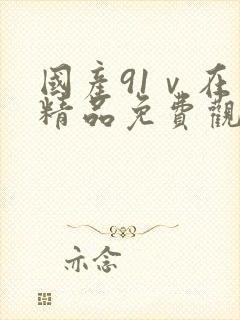 國產91ⅴ在
精品免費觀
亦念